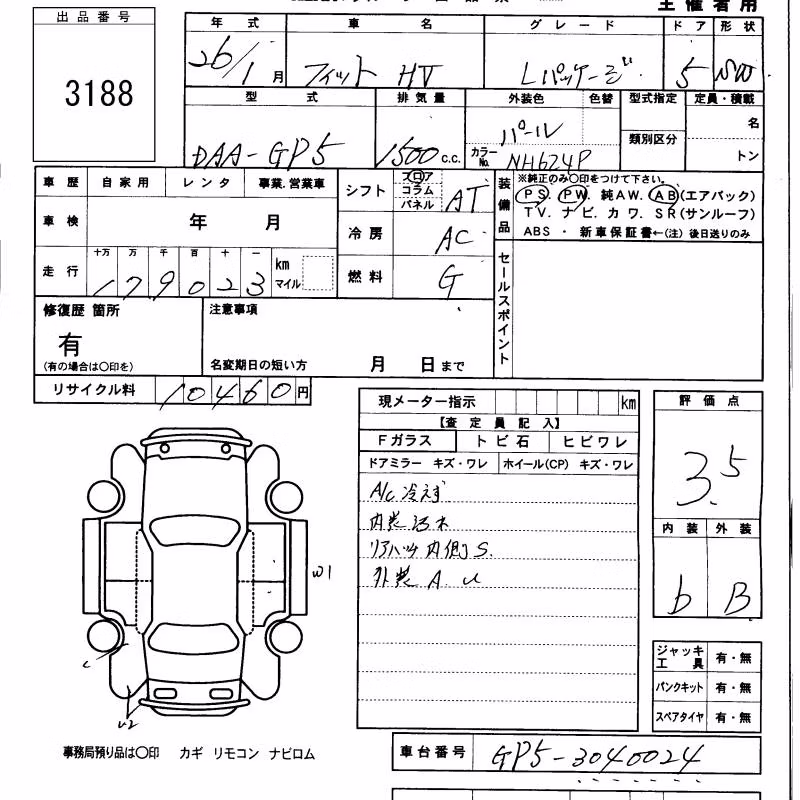 主催者用
出品番号
3188
年式 車名 グレード ドア 形状
26/1月 フィット HV Lパッケージ 5
型式 排気量 外装色 色替 型式指定 定員・積載
DAA-GP5 1500c.c. パール 名
類別区分
カラーNo. NH624P トン
車歴 自家用 レンタ 事業.営業車
シフト フロア コラム パネル AT
装備品 ※純正のみ〇印をつけて下さい。
PS. PW. 純AW. AB(エアバック)
TV. ナビ. カワ. SR(サンルーフ)
ABS ・ 新車保証書←(注) 後日送りのみ
車検 年 月
冷房 AC
走行 十万 万 千 百 十 一
179023 km マイル
燃料 G
セールスポイント
修復歴 箇所
有
(有の場合は〇印を)
注意事項
名変期日の短い方 月 日まで
リサイクル料 10460円
現メーター指示 km
【査定員記入】
Fガラス トビ石 ヒビワレ
ドアミラー キズ・ワレ ホイール(CP) キズ・ワレ
A/C 冷えず
内装汚れ
リアハッチ内側S.
外装 A U
評価点
3.5
内装 外装
b B
W1
U2
ジャッキ工具 有・無
パンクキット 有・無
スペアタイヤ 有・無
事務局預り品は〇印 カギ リモコン ナビロム
車台番号 GP5-3040024